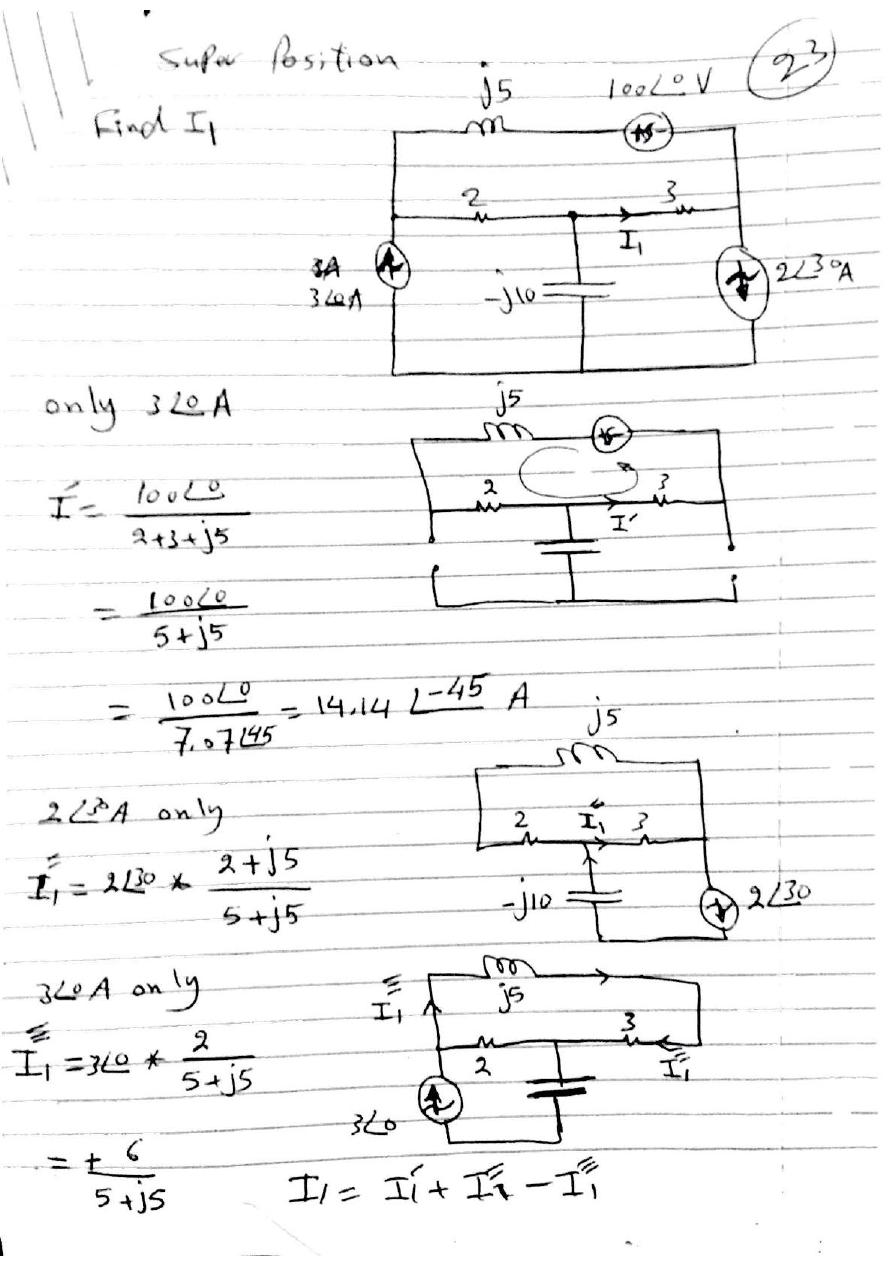 Super Position
23
Find I₁
j5
100∠0° V
2
3
I₁
3A
3∠0 A
-j10
2∠30°A
only 3∠0 A
j5
I' = 100∠0 / 2+3+j5
2
3
I'
= 100∠0 / 5+j5
= 100∠0 / 7.07∠45 = 14.14 ∠-45 A
j5
2∠30°A only
2
I₁''
3
I₁'' = 2∠30 * 2+j5 / 5+j5
-j10
2∠30
3∠0 A only
I₁'''
j5
3
I₁''' = 3∠0 * 2 / 5+j5
2
I₁'''
3∠0
= + 6 / 5+j5
I₁ = I₁' + I₁'' - I₁'''